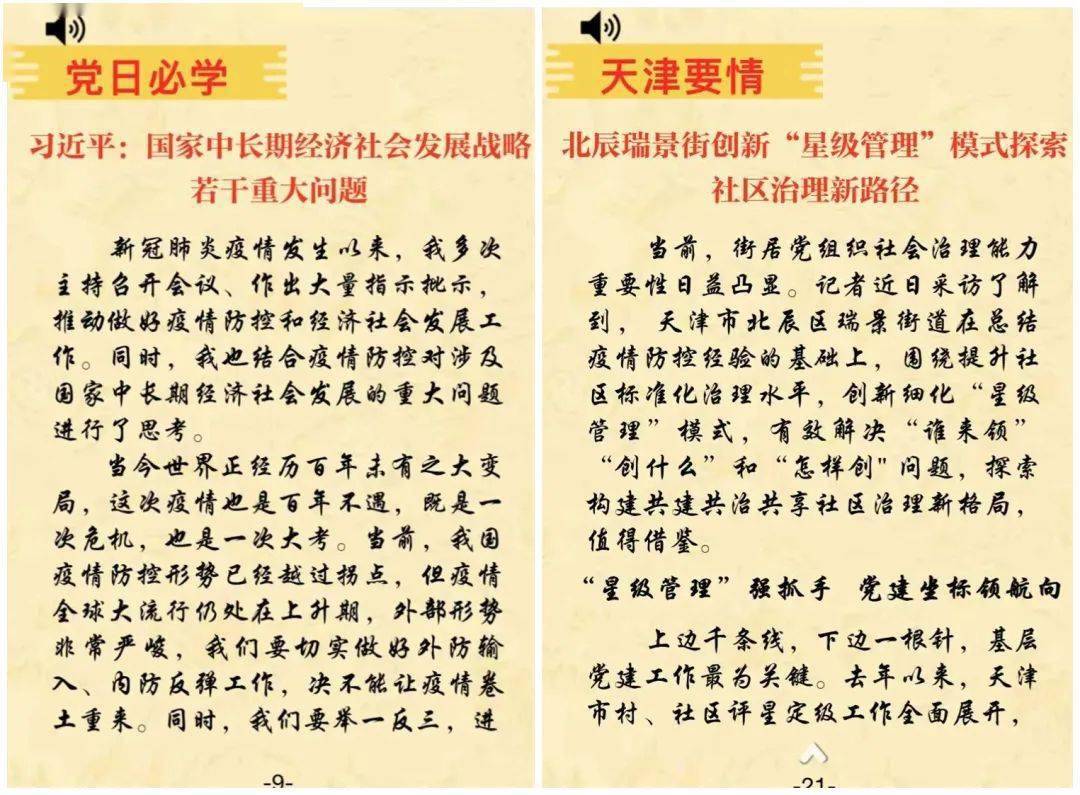 党日必学
习近平：国家中长期经济社会发展战略
若干重大问题
新冠肺炎疫情发生以来，我多次
主持召开会议、作出大量指示批示，
推动做好疫情防控和经济社会发展工
作。同时，我也结合疫情防控对涉及
国家中长期经济社会发展的重大问题
进行了思考。
当今世界正经历百年未有之大变
局，这次疫情也是百年不遇，既是一
次危机，也是一次大考。当前，我国
疫情防控形势已经越过拐点，但疫情
全球大流行仍处在上升期，外部形势
非常严峻，我们要切实做好外防输
入、内防反弹工作，决不能让疫情卷
土重来。同时，我们要举一反三，进
-9-
天津要情
北辰瑞景街创新“星级管理”模式探索
社区治理新路径
当前，街居党组织社会治理能力
重要性日益凸显。记者近日采访了解
到， 天津市北辰区瑞景街道在总结
疫情防控经验的基础上，围绕提升社
区标准化治理水平，创新细化“星级
管理”模式，有效解决“谁来领”
“创什么”和“怎样创"问题，探索
构建共建共治共享社区治理新格局，
值得借鉴。
“星级管理”强抓手 党建坐标领航向
上边千条线，下边一根针，基层
党建工作最为关键。去年以来，天津
市村、社区评星定级工作全面展开，
-21-